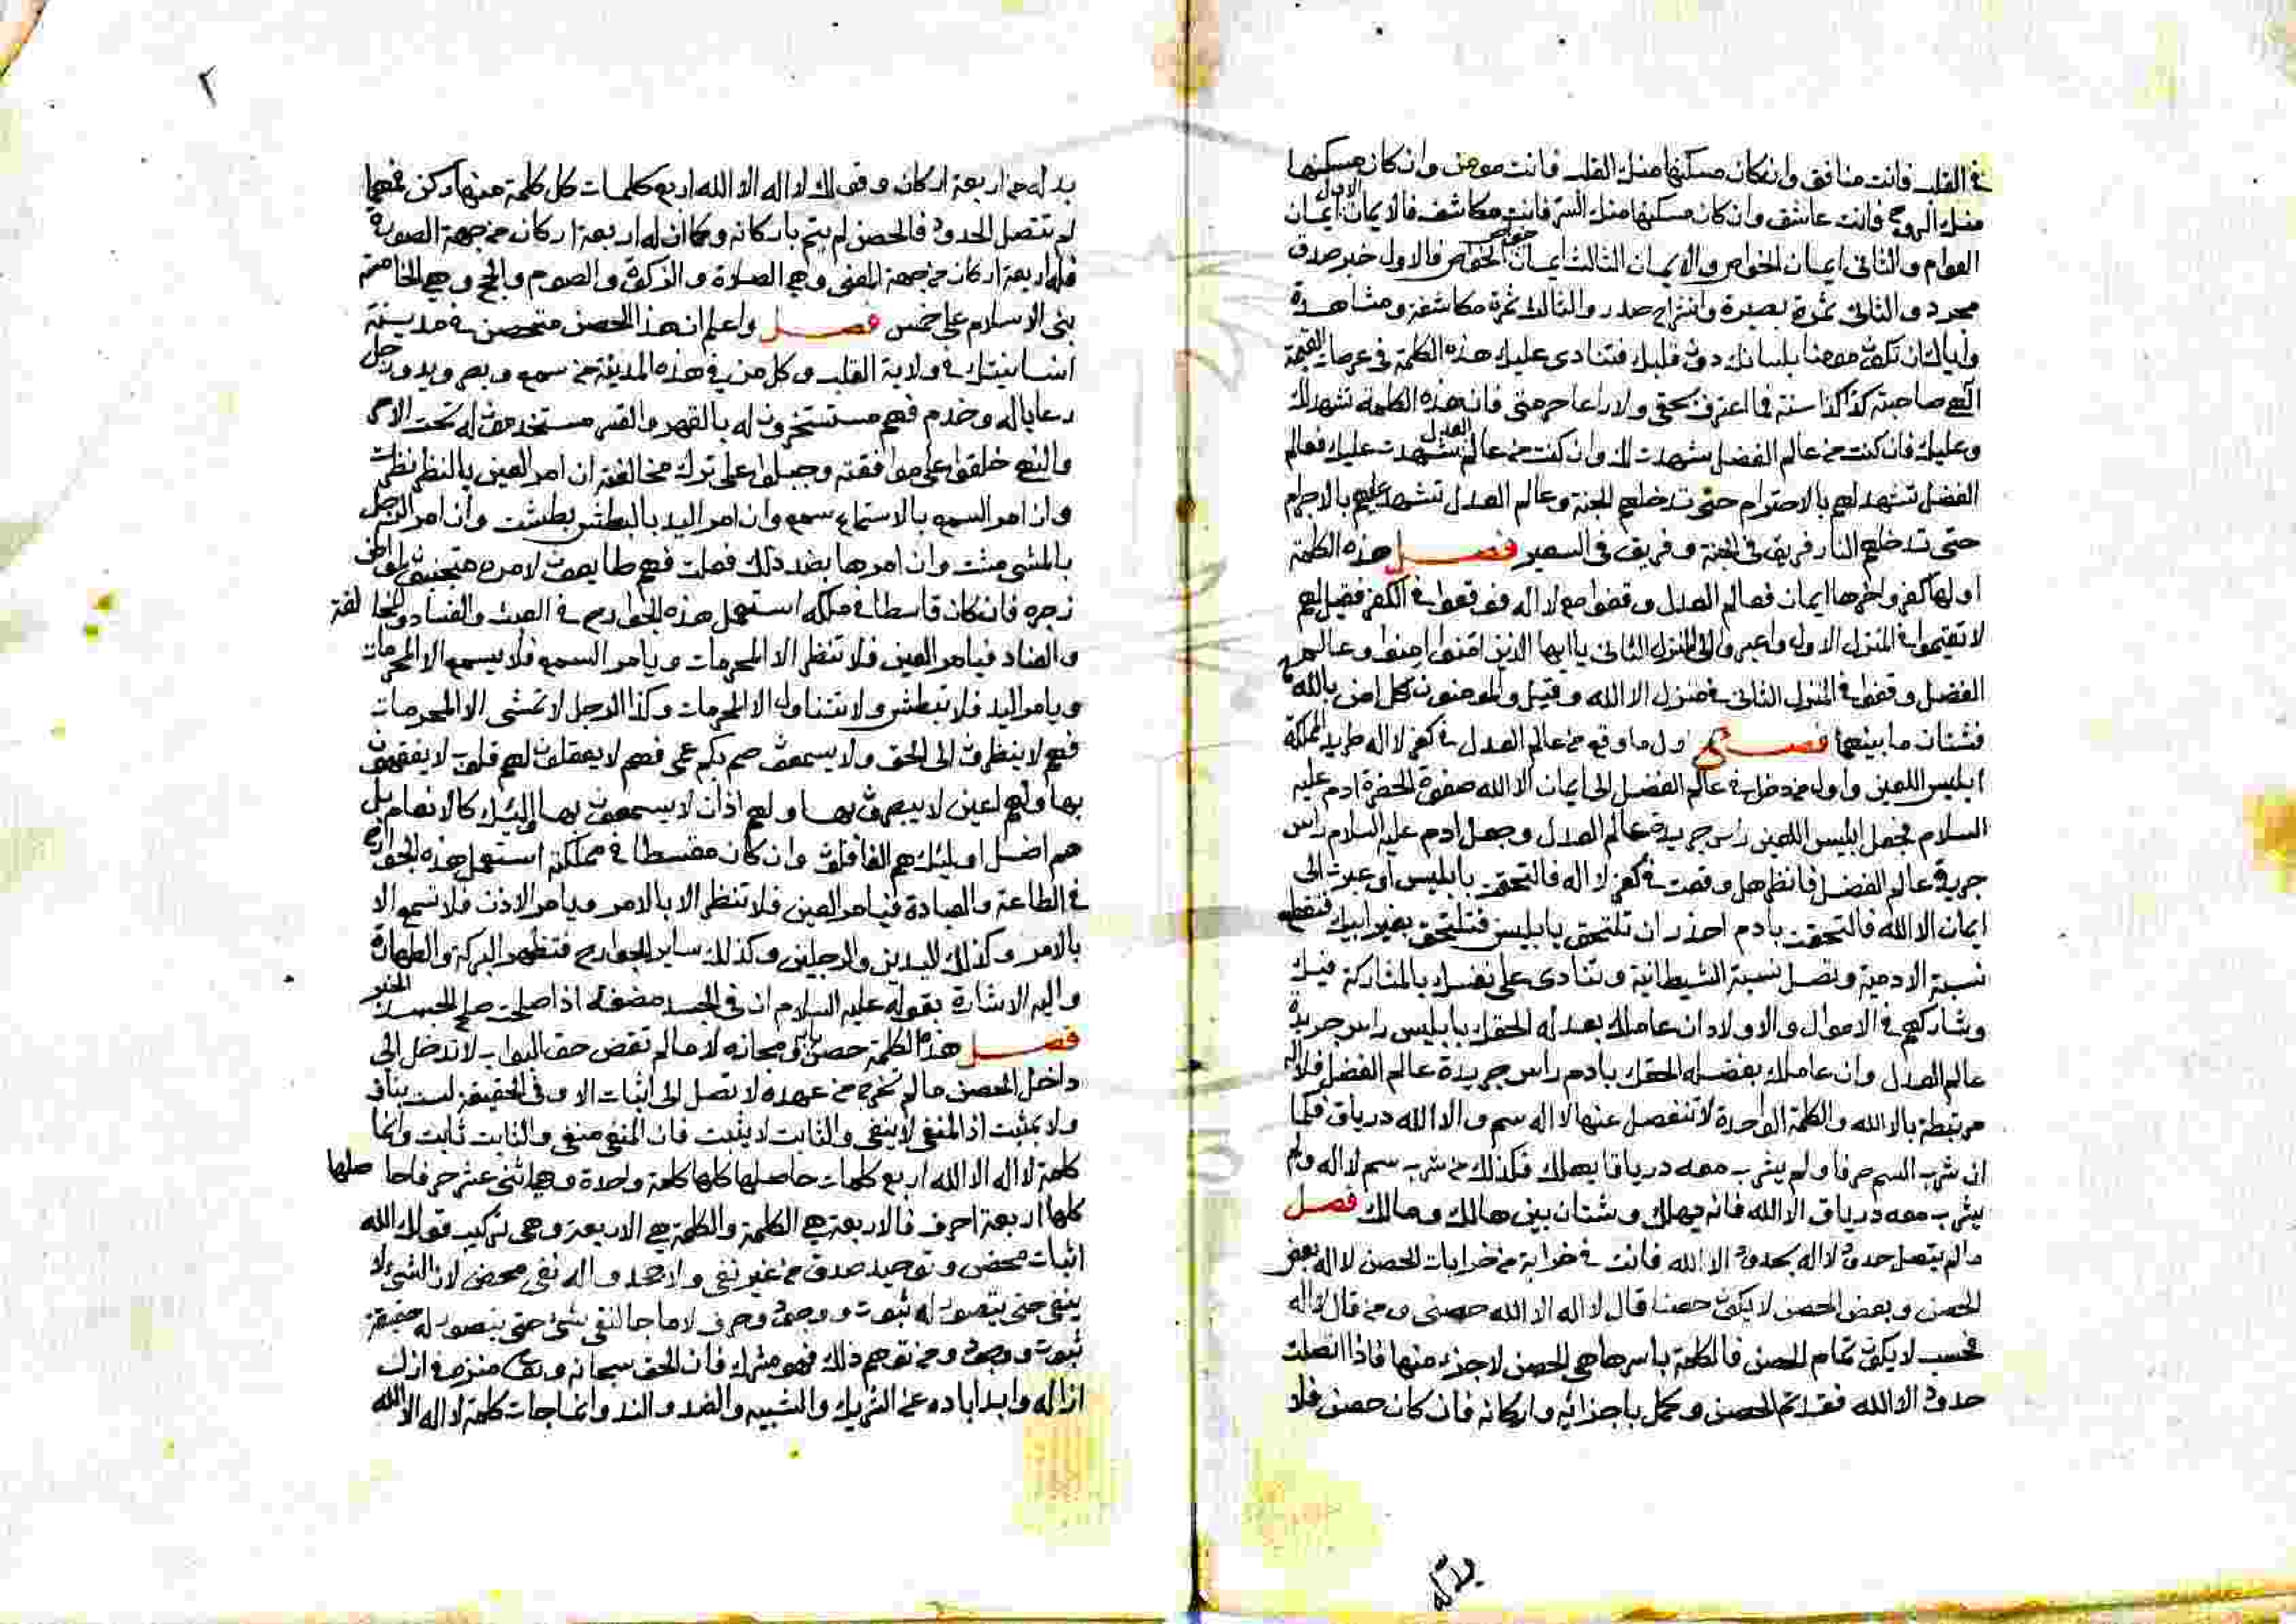 في القلب فانت منافق وان كان مسكنها منك القلب فانت مومن وان كان مسكنها
منك الروح فانت عاشق وان كان مسكنها منك السر فانت مكاشف فالايمان الاول ايمان
العوام والثاني ايمان الخواص والايمان الثالث ايمان خواص الخواص فالاول خبر صدق
مجرد والثاني ثمرة بصيرة وانشراح صدر والثالث ثمرة مكاشفة ومشاهدة
واياك ان تكون مومنا بلسانك دون قلبك فتنادي عليك هذه الكلمة في عرصات القيمة
الهي صاحبته كذا كذا سنة فما اعترف بحقي ولا راعا حرمتي فان هذه الكلمة تشهد لك
وعليك فان كنت من عالم الفضل شهدت لك وان كنت من عالم العدل شهدت عليك فعالم
الفضل تشهد لهم بالاحترام حتى تدخلهم الجنة وعالم العدل تشهد عليهم بالاجرام
حتى تدخلهم النار فريق في الجنة وفريق في السعير فصل هذه الكلمة
اولها كفر واخرها ايمان فعالم العدل وقفوا مع لا اله فوقعوا في الكفر فقيل لهم
لا تقيموا في المنزل الاول واعبروا الى المنزل الثاني يا ايها الذين امنوا امنوا وعالم
الفضل وقفوا في المنزل الثاني في منزل الا الله وقيل والمومنون كل امن بالله
فشتان ما بينهما فصل اول ما وقع من عالم العدل في كفر لا اله طريد المملكة
ابليس اللعين واول من دخل في عالم الفضل الى ايمان الا الله صفوة الحضرة ادم عليه
السلام فجعل ابليس اللعين راس جريدة عالم العدل وجعل ادم عليه السلام راس
جريدة عالم الفضل فانظر هل وقعت في كفر لا اله فالتحقت بابليس او عبرت الى
ايمان الا الله فالتحقت بادم احذر ان تلتحق بابليس فتلتحق بغير ابيك فتقطع
نسبة الادمية وتصل نسبة الشيطانية وتنادي على نفسك بالمشاركة فيك
وشاركهم في الاموال والاولاد ان عاملك بعدله الحقك بابليس راس جريدة
عالم العدل وان عاملك بفضله الحقك بادم راس جريدة عالم الفضل فلا اله
مرتبطة بالا الله والكلمة الواحدة لا تنفصل عنها لا اله سم والا الله درياق فكما
ان شرب السم صرفا ولم يشرب معه درياقا يهلك فكذلك من شرب سم لا اله ولم
يشرب معه درياق الا الله فانه يهلك وشتان بين هالك ومالك فصل
ما لم يتصل حدود لا اله بحدود الا الله فانت في خرابة من خرابات الحصن لا اله بعض
الحصن وبعض الحصن لا يكون حصنا قال لا اله الا الله حصني ومن قال لا اله
فحسب لا يكون تمام الحصن فالكلمة باسرها هي الحصن لا جزء منها فاذا اتصلت
حدود الا الله فقد تم الحصن وكمل باجزائه واركانه فان كان حصن فلا
بد له
٢
بد له من اربعة اركان وقولك لا اله الا الله اربع كلمات كل كلمة منها ركن فمهما
لم تتصل الحدود فالحصن لم يتم باركانه وكما ان له اربعة اركان من جهة الصورة
فله اربعة اركان من جهة المعنى وهي الصلوة والزكوة والصوم والحج وهي الخامسة
بني الاسلام على خمس فصل واعلم ان هذا الحصن متحصن في مدينة
انسانيتك في ولاية القلب وكل من في هذه المدينة من سمع وبصر ويد ورجل
رعايا له وخدم فهم مستسخرون له بالقهر والقسر مستخدمون له تحت الامر
والنهي خلقوا على موافقته وجبلوا على ترك مخالفته ان امر العين بالنظر نظرت
وان امر السمع بالاستماع سمع وان امر اليد بالبطش بطشت وان امر الرجل
بالمشي مشت وان امرها بضد ذلك فعلت فهم طايعون لامره متجنبون لمواطن
زجره فان كان قاسطا في ملكه استعمل هذه الجوارح في العبث والفساد والمخالفة
والعناد فيامر العين فلا تنظر الا المحرمات ويامر السمع فلا يسمع الا المحرمات
ويامر اليد فلا تبطش ولا تتناول الا المحرمات وكذا الرجل لا تمشي الا المحرمات
فهم لا ينظرون الى الحق ولا يسمعون صم بكم عمي فهم لا يعقلون لهم قلوب لا يفقهون
بها ولهم اعين لا يبصرون بها ولهم اذان لا يسمعون بها اوليك كالانعام بل
هم اضل اوليك هم الغافلون وان كان مقسطا في مملكته استعمل هذه الجوارح
في الطاعة والعبادة فيامر العين فلا تنظر الا بالامر ويامر الاذن فلا تسمع الا
بالامر وكذلك اليدين والرجلين وكذلك ساير الجوارح فتظهر البركة والطهارة
واليه الاشارة بقوله عليه السلام ان في الجسد مضغة اذا صلحت صلح الجسد الخبر
فصل هذه الكلمة حصن ومجانه لا ما لم تقض حق البواب لا تدخل الى
داخل الحصن ما لم تخرج من عهدة لا تصل الى اثبات الا وفي الحقيقة لست بناف
ولا بمثبت اذ المنفي لا ينفى والثابت لا يثبت فان المنفي منفي والثابت ثابت وانما
كلمة لا اله الا الله اربع كلمات حاصلها كلها كلمة واحدة وهي اثني عشر حرفا حاصلها
كلها اربعة احرف فالاربعة هي الكلمة والكلمة هي الاربعة وهي تركيب قولك الله
اثبات محض وتوحيد صدق من غير نفي ولا جحد واله نفي محض لان الشيء لا
ينفى حتى يتصور له ثبوت ووجود وحرف لا ما جا لنفي شيء حتى يتصور له حقيقة
ثبوت ووجود ومن توهم ذلك فهو مشرك فان الحق سبحانه وتعالى منزه في ازل
ازاله وابد اباده عن الشريك والشبيه والضد والند وانما جات كلمة لا اله الا الله